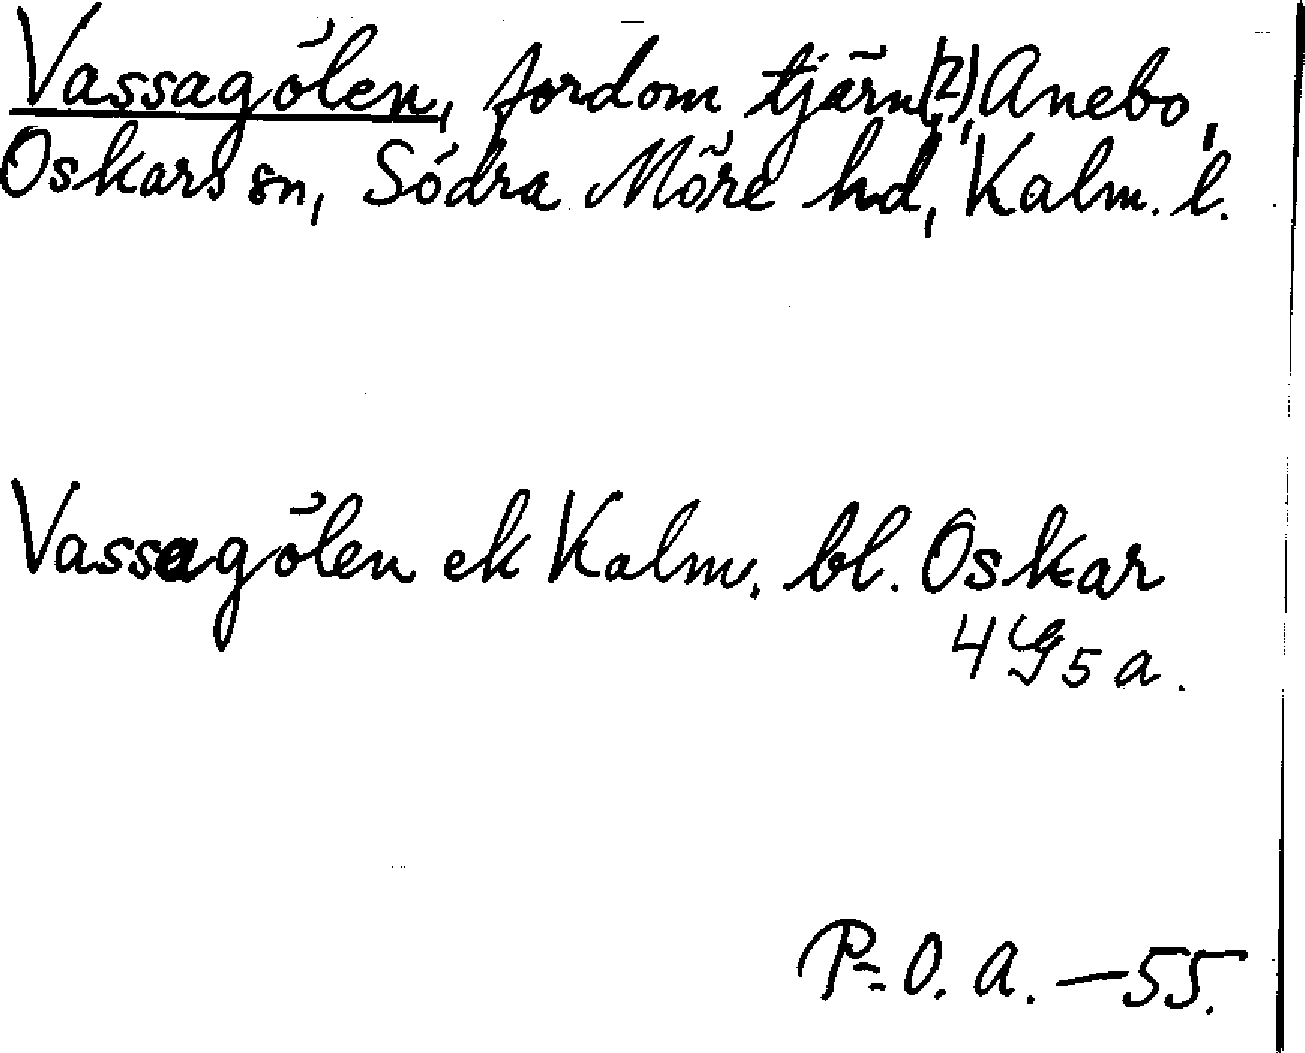 Vassagölen, fordom tjärn(?), Anebo,
Oskars sn, Södra Möre hd, Kalm. l.
Vassagölen ek Kalm. bl. Oskar
4 G 5 a.
P=O. A. — 55.